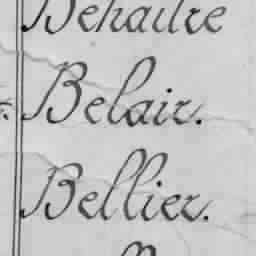 Behaitre
Belair.
Bellier.